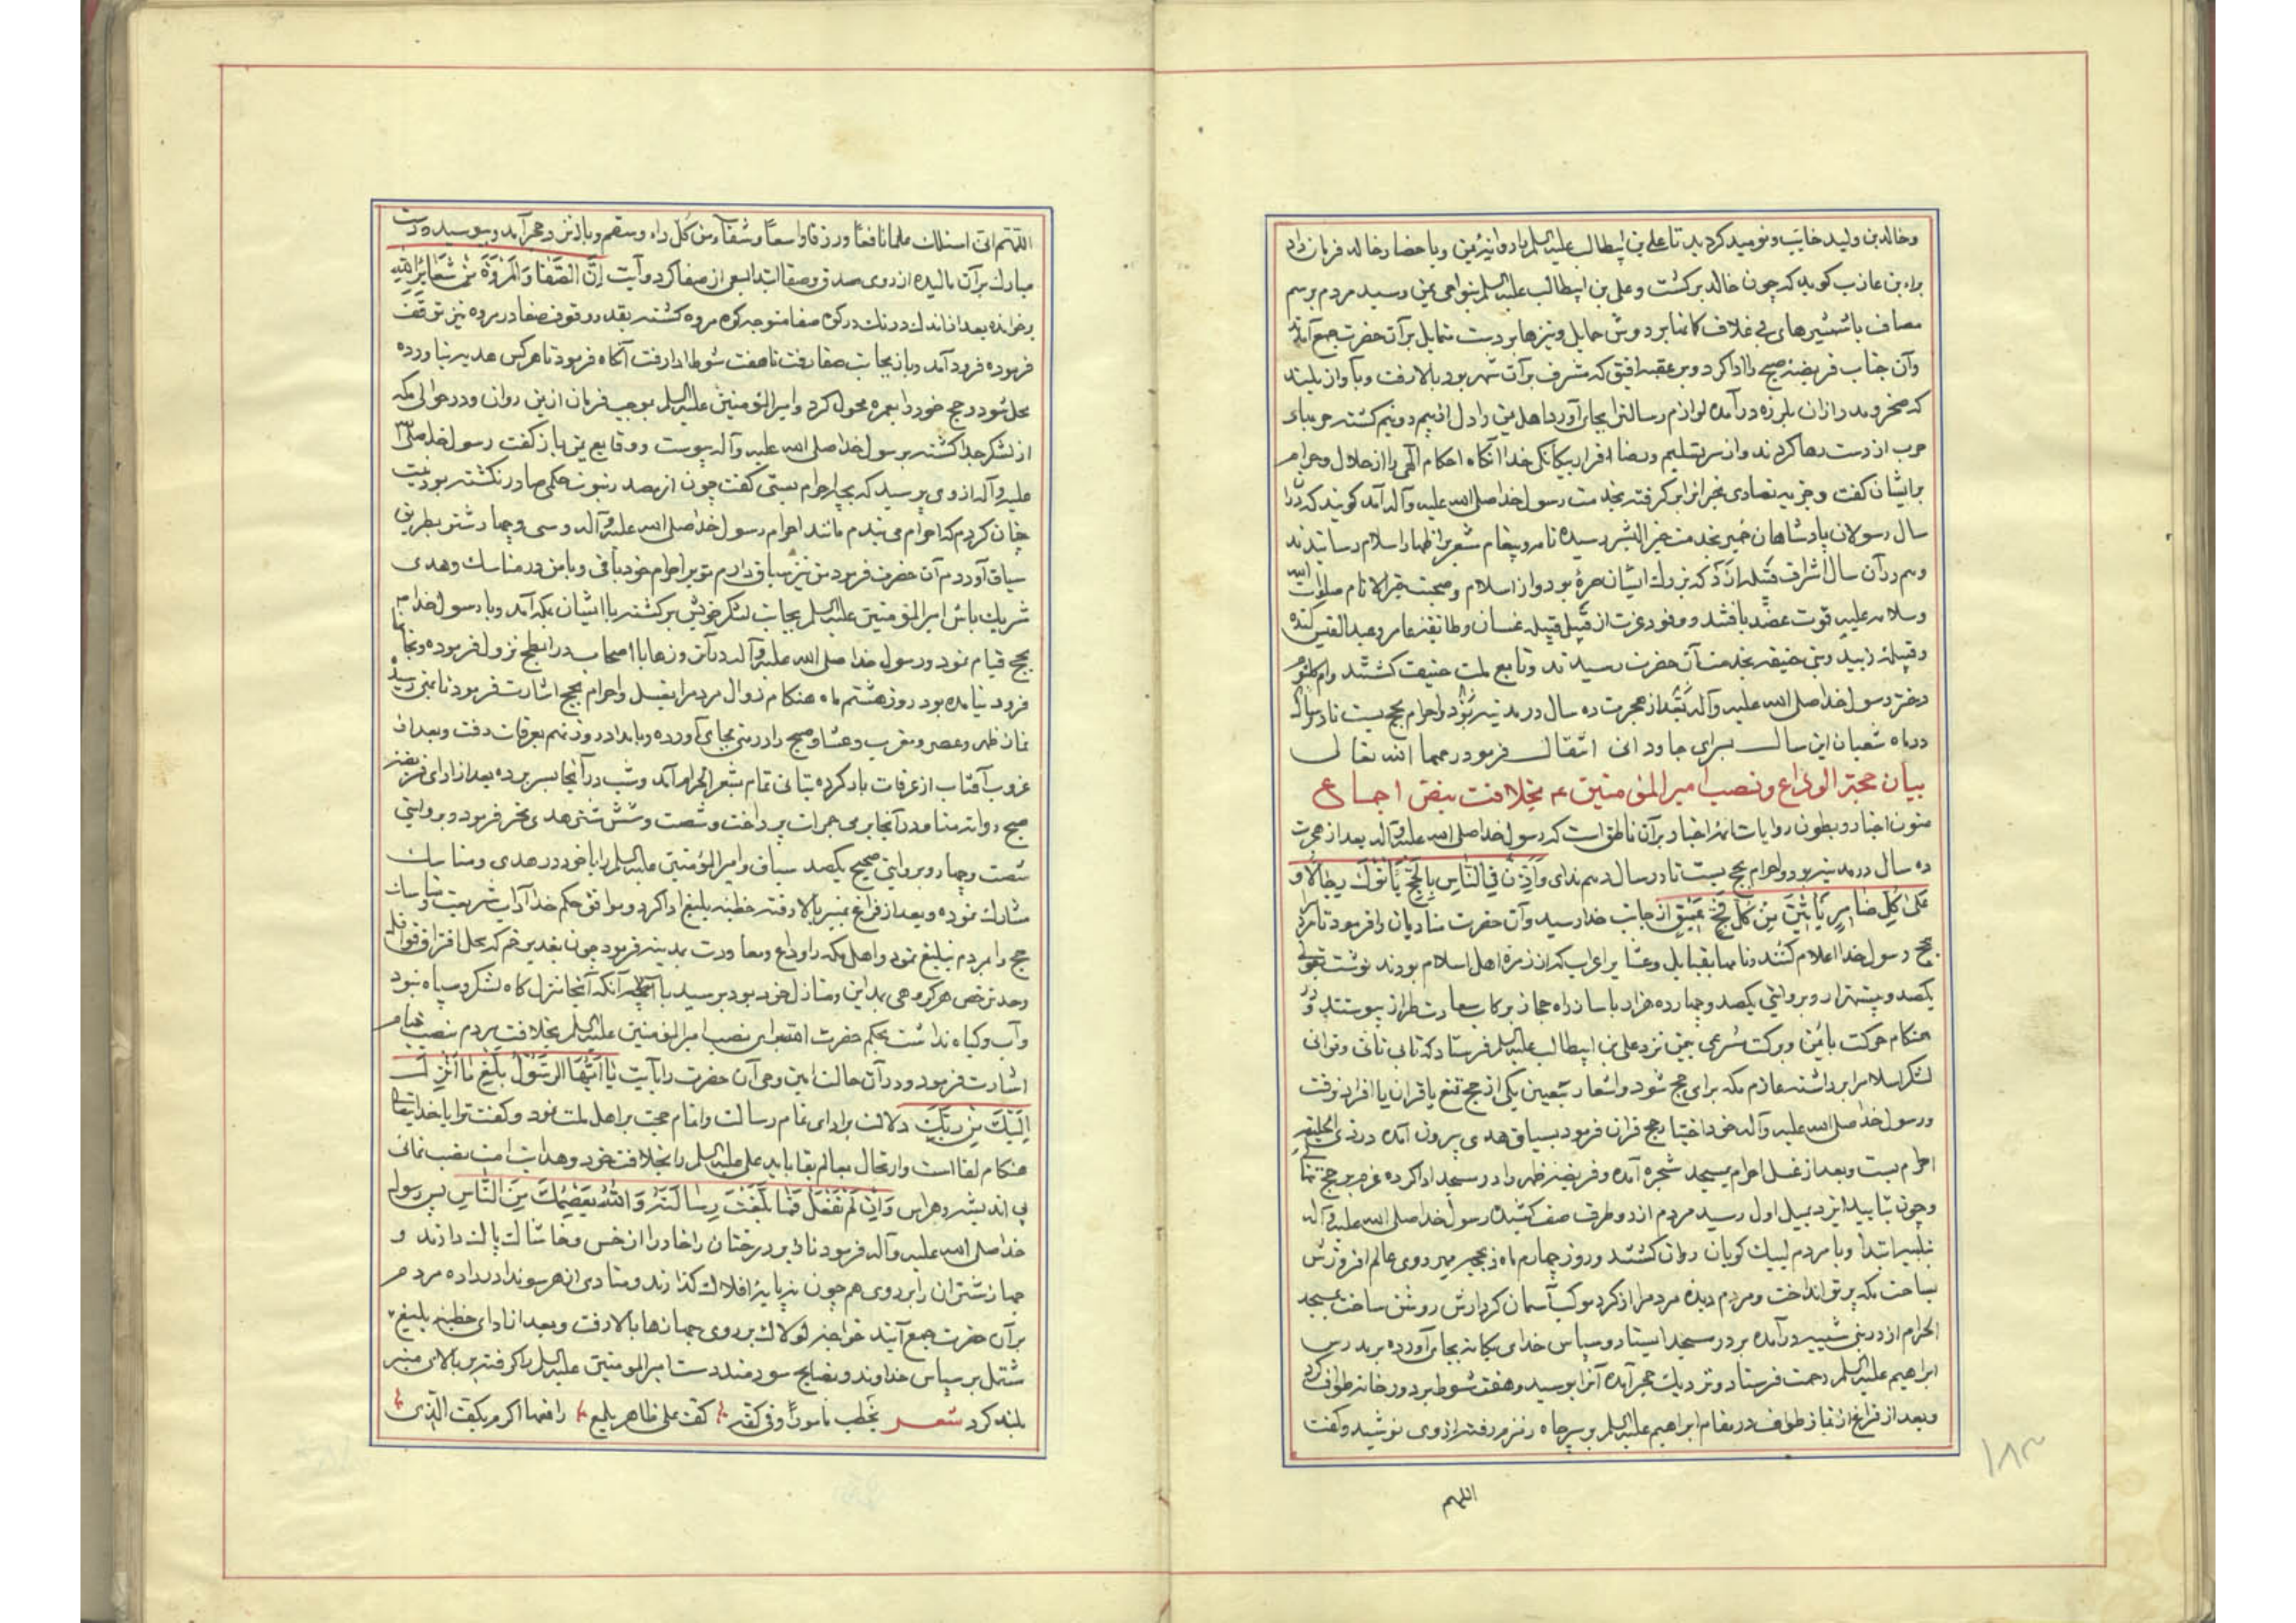 وخالد بن وليد خايب ونوميد كرديد تا على بن ابيطالب عليه السلم را روانه يمن و باحضار خالد فرمان داد
براء بن عازب كويد كه چون خالد بركشت و على بن ابيطالب عليه السلم بنواحى يمن رسيد مردم برسم
مصاف با شمشيرهاى بى غلاف كانما بر دوش حمايل و نيزها بر دست متمايل بر آن حضرت جمع آمدند
وآن جناب فريضه صبح را ادا كرد و بر عقبه افيق كه مشرف بر آن شهر بود بالا رفت و بآواز بلند
كه صخره در ازان بلرزه درآمده لوازم رسالت را بجاى آورد اهل يمن را دل از بيم دو نيم كشته حربهاى
حرب از دست رها كردند و از سر تسليم و رضا اقرار بيكانكى خدا آنكاه احكام الهى را از حلال و حرام
برايشان كفت و جزيه نصاداى نجران را كرفته بخدمت رسول خدا صلى الله عليه وآله آمد كويند كه در آن
سال رسولان پادشاهان حمير بخدمت خير البشر رسيده نامه و پيغام مشعر بر اظهار اسلام رسانيدند
وهم در آن سال اشراف قبيله ازد كه بزرك ايشان صرد بود و از اسلام و صحبت خير الانام صلوات الله
وسلامه عليه قوت عضد يافتند و وفود عزت از قبل قبيله غسان و طايفه عامر و عبد القيس كنده
وقبيله زبيد و بنى حنيفه بخدمت آن حضرت رسيدند و تابع ملت حنيف كشتند و ام كلثوم
دختر رسول خدا صلى الله عليه وآله بعد از هجرت ده سال در مدينه بود و احرام بحج نبست تا در سال
در ماه شعبان اين سال بسراى جاودانى انتقال فرمود رحمها الله تعالى
بيان حجة الوداع و نصب امير المؤمنين ع بخلافت بنص اجماع
متون اخبار و بطون روايات ائمه اخيار بر آن ناطق است كه رسول خدا صلى الله عليه وآله بعد از هجرت
ده سال در مدينه بود و احرام بحج نبست تا در سال دهم نداى وَاَذِّنْ فِى النَّاسِ بِالْحَجِّ يَأْتُوكَ رِجالًا وَ
عَلى كُلِّ ضامِرٍ يَأْتينَ مِنْ كُلِّ فَجٍّ عَميقٍ از جانب خدا رسيد و آن حضرت مناديان را فرمود تا مردم را
بحج رسول خدا اعلام كنند و نامها بقبايل و عشاير اعراب كه از زمره اهل اسلام بودند نوشت بقولى
يكصد و بيست هزار و بروايتى يكصد و چهارده هزار با ساز راه حجاز بركاب سعادت طراز پيوستند و در
هنكام حركت با يمن و بركت شرعى بيمن نزد على بن ابيطالب عليه السلم فرستاد كه تا بى تانى و توانى
لشكر اسلام را برداشته عازم مكه براى حج شود و اشعار بتعيين يكى از حج تمتع يا قران يا افراد نرفت
ورسول خدا صلى الله عليه وآله خود اختيار حج قران فرمود بسياق هدى بيرون آمده در ذى الحليفه
احرام بست و بعد از غسل احرام بمسجد شجره آمده و فريضه ظهر را در مسجد ادا كرده عزم بر حج تنها
وچون بتاييد ايزد بميل اول رسيد مردم از دو طرف صف كشيده رسول خدا صلى الله عليه وآله
تلبيه ابتدا و با مردم لبيك كويان روان كشتند و روز چهارم ماه ذيحجه مهر روى عالم افروزش
بساحت مكه پرتو انداخت و مردم ديده مردم را از كرد موكب آسمان كردارش روشن ساخت بمسجد
الحرام از در بنى شيبه درآمده بر در مسجد ايستاد و سپاس خداى يكانه بجاى آورده بر پدرش
ابراهيم عليه السلم رحمت فرستاد و نزديك حجر آمده آنرا بوسيد و هفت شوط بر دور خانه طواف كرد
وبعد از فراغ از نماز طواف در مقام ابراهيم عليه السلم بر سر چاه زمزم رفته از وى نوشيد و كفت
اللهم
١٨٣
اللّهم انى اسئلك علما نافعا ورزقا واسعا وشفاء من كل داء وسقم و باز نزد حجر آمد و بوسيد و دست
مبارك بر آن ماليده از روى صدق و صفا ابتدا بسعى از صفا كرد و آيت اِنَّ الصَّفا وَالْمَرْوَةَ مِنْ شَعائِرِ اللهِ
برخوانده بعد از اندك درنك در كوه صفا متوجه كوه مروه كشته بقدر وقوف صفا در مروه نيز توقف
فرموده فرود آمد و باز بجانب صفا رفت تا هفت شوط ادا رفت آنكاه فرمود تا هر كس هديه نياورده
محل شود و حج خود را بعمره محول كرد و امير المؤمنين عليه السلم بموجب فرمان از يمن روان و در حوالى مكه
از لشكر جدا كشته برسول خدا صلى الله عليه وآله پيوست و وقايع يمن باز كفت رسول خدا صلى الله
عليه وآله از وى پرسيد كه بچه احرام بستى كفت چون از مصدر نبوت حكمى صادر نكشته بود نيت
چنان كردم كه احرام مى بندم مانند احرام رسول خدا صلى الله عليه وآله و سى و چهار شتر بطريق
سياق آوردم آن حضرت فرمود من نيز سياق دارم تو بر احرام خود باقى و با من در مناسك و هدى
شريك باش امير المؤمنين عليه السلم بجانب لشكر خويش بركشته با ايشان بمكه آمد و با رسول خدا م
بحج قيام نمود و رسول خدا صلى الله عليه وآله در آن روزها با اصحاب در ابطح نزول فرموده و بخانها
فرود نيامده بود روز هشتم ماه هنكام زوال مردم را بغسل و احرام بحج اشارت فرمود تا بمنى رسيد
نماز ظهر و عصر و مغرب و عشا و صبح را در منى بجاى آورده و بامداد روز نهم بعرفات رفت و بعد از
غروب آفتاب از عرفات باز كرده بتانى تمام بمشعر الحرام آمد و شب در آنجا بسر برده بعد از اداى فريضه
صبح روانه منا و در آنجا برمى جمرات پرداخت و شصت و شش شتر هدى نحر فرمود و بروايتى
شصت و چهار و بروايتى صحيح يكصد سياق و امير المؤمنين عليه السلم را با خود در هدى و مناسك
مشارك نموده و بعد از فراغ بمنبر بالا رفته خطبه بليغ ادا كرد و موافق حكم خدا آداب شريعت و مناسك
حج را بمردم تبليغ نمود و اهل مكه را وداع و معاودت بمدينه فرمود چون بغدير خم كه محل افتراق قوافل
وحد ترخص هر كروهى بمداين و منازل خود بود برسيد با آنكه آنجا منزل كاه لشكر و سپاه نبود
وآب و كياه نداشت بحكم حضرت اقدس الهى نصب امير المؤمنين عليه السلم بخلافت بمردم بنصب خيام
اشارت فرمود و در آن حالت امين وحى آن حضرت را بآيت يا اَيُّهَا الرَّسُولُ بَلِّغْ ما اُنْزِلَ
اِلَيْكَ مِنْ رَبِّكَ دلالت بر اداى تمام رسالت و اتمام حجت بر اهل ملت نمود و كفت ترا با خداى تعالى
هنكام لقا است و ارتحال بعالم بقا بايد على عليه السلم را بخلافت خود و هدايت امت نصب نمائى
بى انديشه و هراس وَاِنْ لَمْ تَفْعَلْ فَما بَلَّغْتَ رِسالَتَهُ وَاللهُ يَعْصِمُكَ مِنَ النَّاسِ پس رسول
خدا صلى الله عليه وآله فرمود تا زير درختان را خادر از خس و خاشاك پاك دارند و
جهاز شتران را بر روى هم چون نه پايه افلاك كذارند و منادى از هر سو ندا در داده مردم
بر آن حضرت جمع آيند خواجه لولاك بر روى جهازها بالا رفت و بعد از اداى خطبه بليغ
مشتمل بر سپاس خداوند و نصايح سودمند دست امير المومنين عليه السلم را كرفته بر بالاى منبر
بلند كرد شعر يخطب مأمورا وفى كفه كف على ظاهر يلمع رافعها اكرم بكف الذى